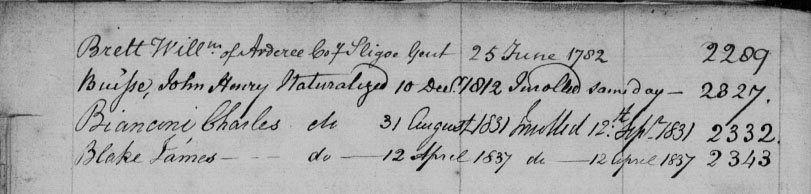 Brett Willm of Arderee Co of Sligoe Gent 25 June 1782 2289
Buisse, John Henry Naturalized 10 Decr 1812 Inrolled same day — 2327.
Bianconi Charles do 31 August 1831 Inrolled 12th Sepr 1831 2332.
Blake James — do — 12 April 1837 do — 12 April 1837 2343